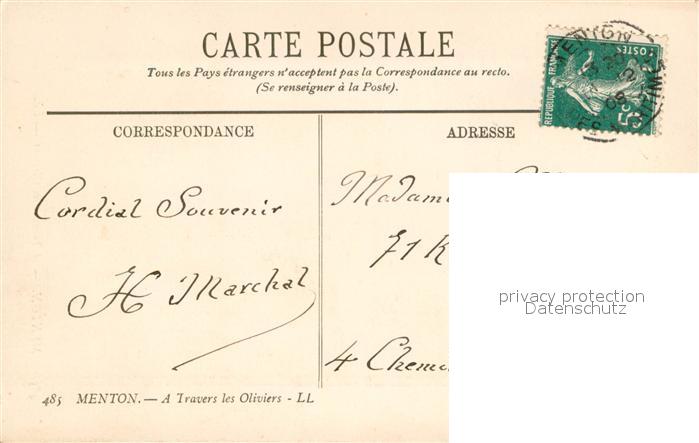 CARTE POSTALE
Tous les Pays étrangers n'acceptent pas la Correspondance au recto.
(Se renseigner à la Poste).
CORRESPONDANCE
ADRESSE
MENTON
REPUBLIQUE FRANÇAISE
POSTES
Cordial Souvenir
H Marchal
Madam
71 R
4 Chem
privacy protection
Datenschutz
485 MENTON. — A Travers les Oliviers - LL